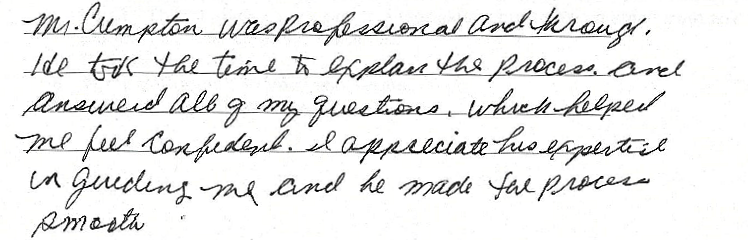 Mr. Crumpton was professional and through.
He took the time to explan the process. and
answered all of my questions. which helped
me feel confident. I appreciate his expertise
in guiding me and he made the process
smooth